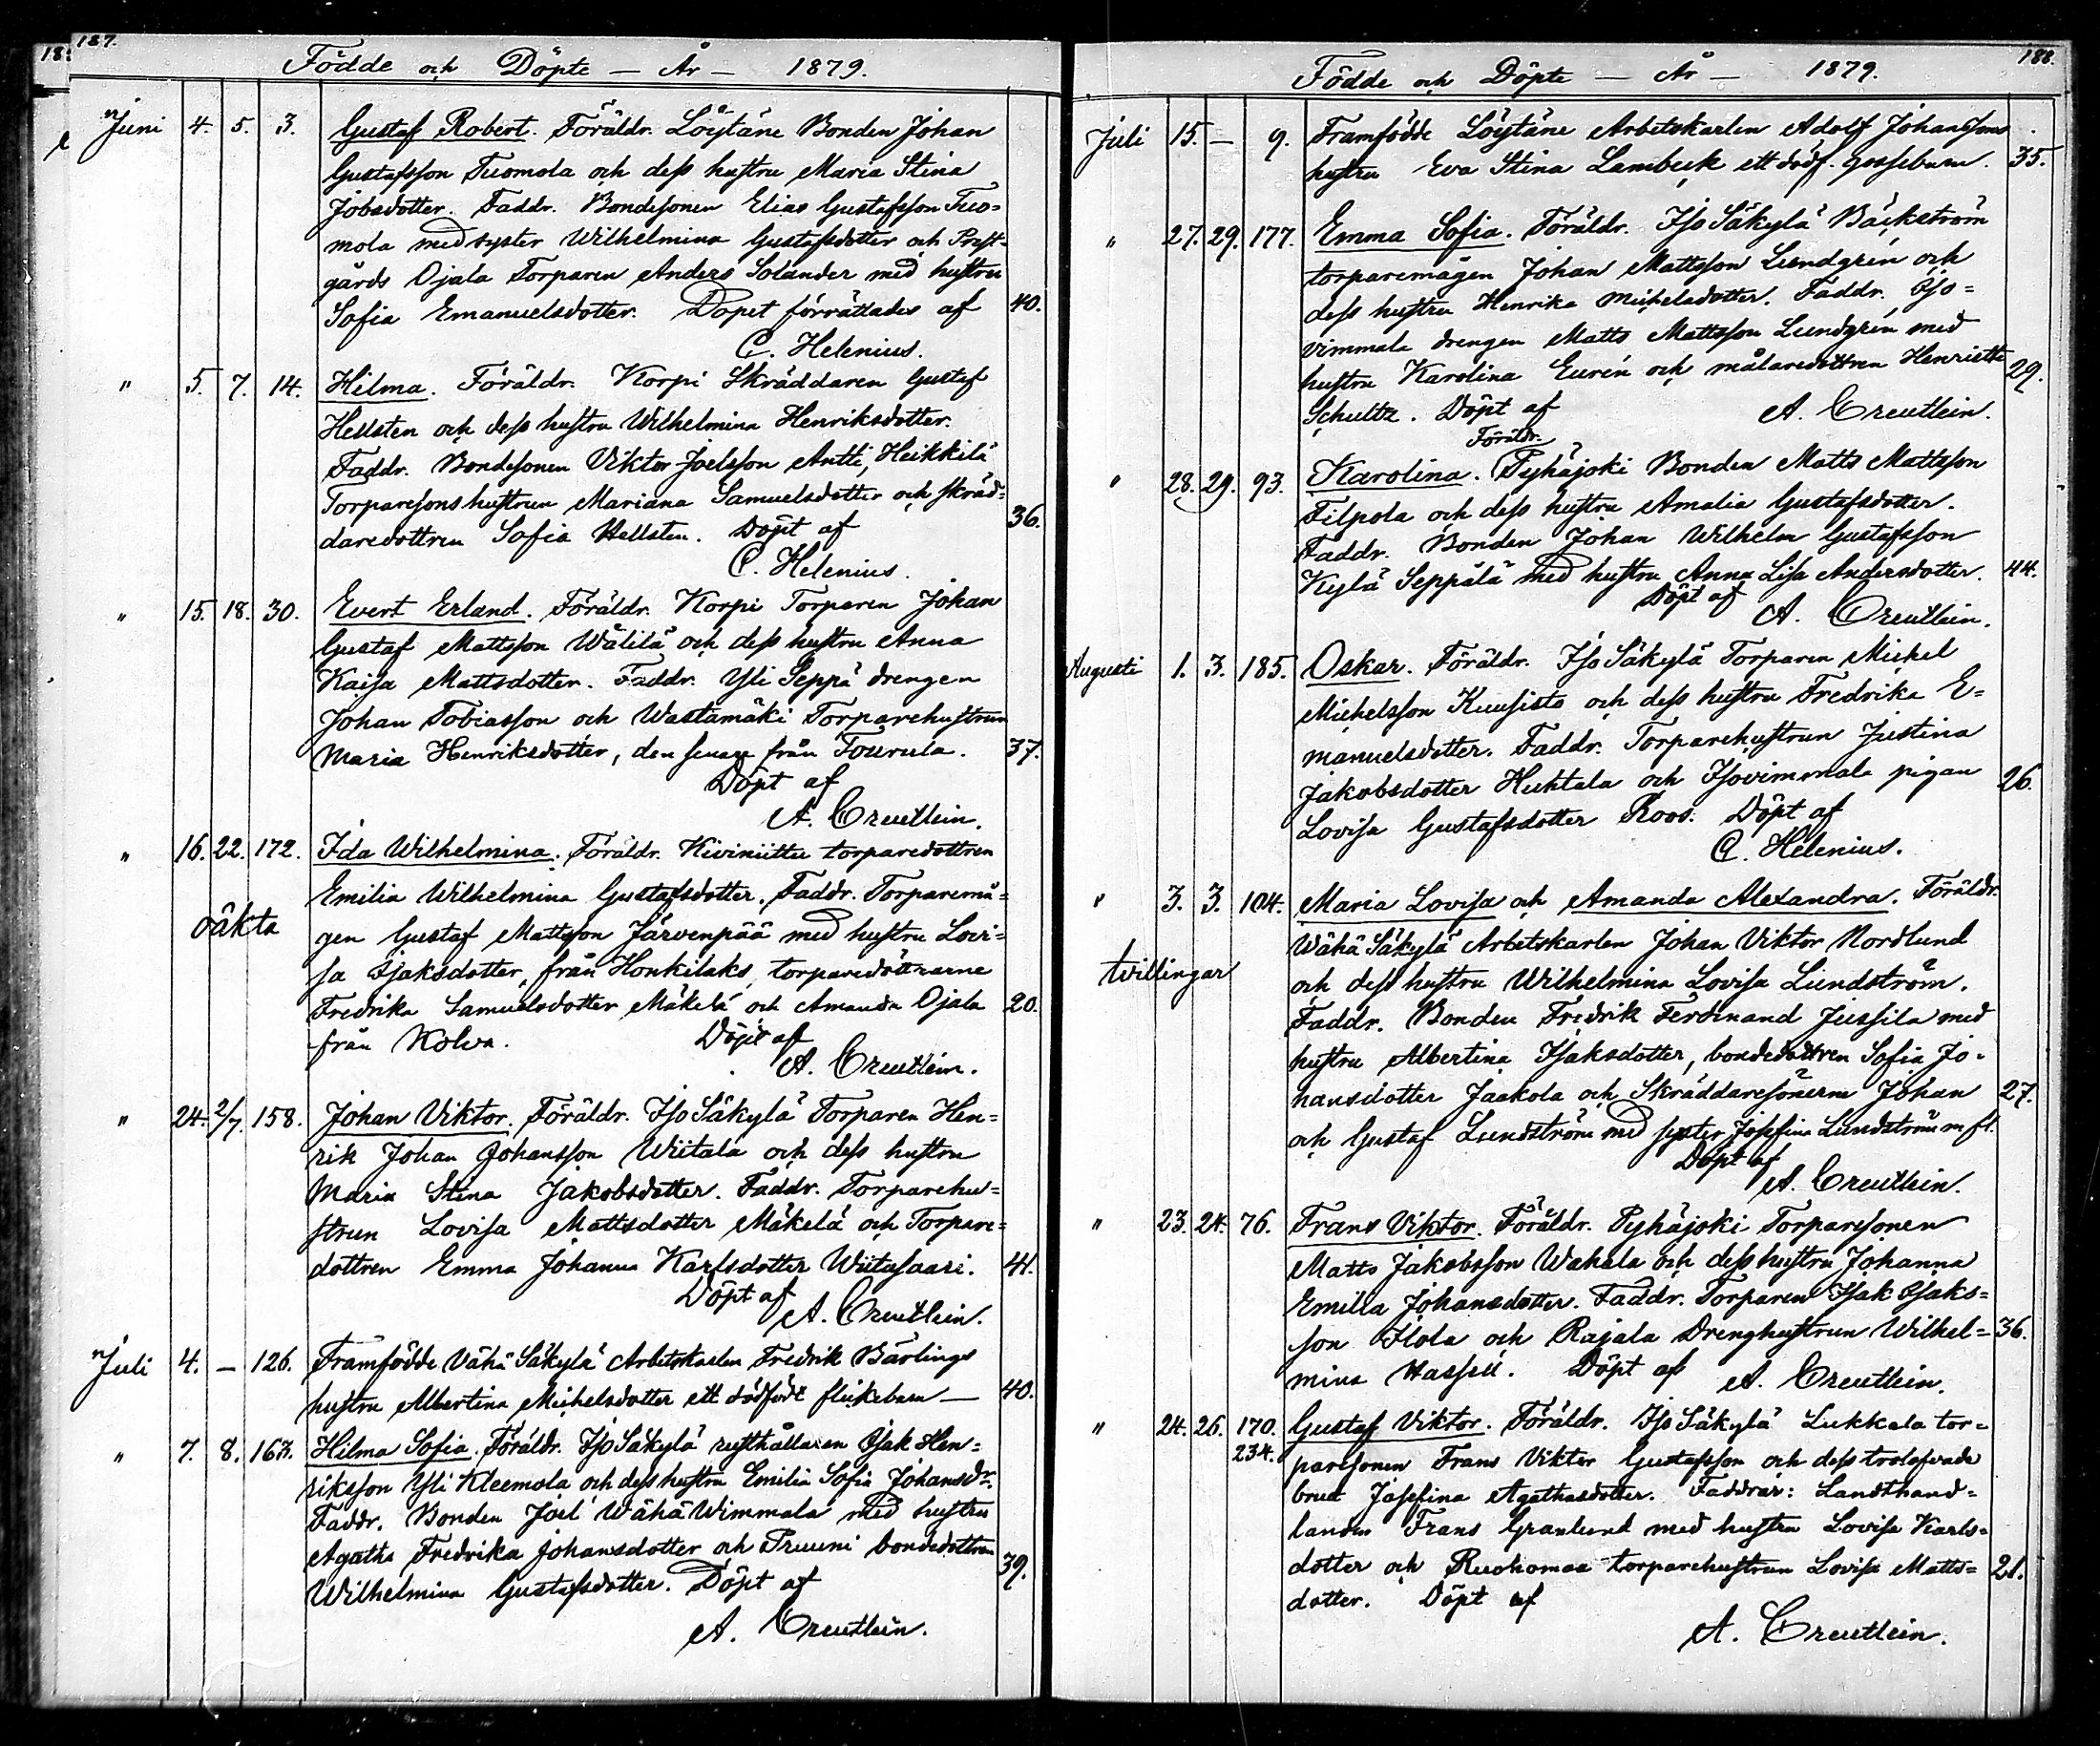 187.
Födde och Döpte — År — 1879.
Juni 4. 5. 3. Gustaf Robert. Föräldr. Löytäne Bonden Johan
Gustafsson Tuomola och dess hustru Maria Stina
Jobsdotter. Faddr. Bondesonen Elias Gustafsson Tuo=
mola med syster Wilhelmina Gustafsdotter och Prest-
gårds Ojala Torparen Anders Solander med hustru
Sofia Emanuelsdotter. Dopet förrättades af 40.
C. Helenius.
" 5. 7. 14. Hilma. Föräldr. Korpi Skräddaren Gustaf
Hellsten och dess hustru Wilhelmina Henriksdotter.
Faddr. Bondesonen Viktor Joelsson Antti, Heikkilä
Torparesonshustrun Mariana Samuelsdotter och skräd=
daredottren Sofia Hellsten. Döpt af 36.
C. Helenius.
" 15. 18. 30. Evert Erland. Föräldr. Korpi Torparen Johan
Gustaf Mattsson Wälilä och dess hustru Anna
Kaisa Mattsdotter. Faddr. Yli Seppä drengen
Johan Tobiasson och Wastamäki Torparehustrun
Maria Henriksdotter, den senare från Tourula. 37.
Döpt af
A. Creutlein.
" 16. 22. 172. Ida Wilhelmina. Föräldr. Kiviniittu torparedottren
Emilia Wilhelmina Gustafsdotter. Faddr. Torparemå=
oäkta gen Gustaf Mattsson Järvenpää med hustru Lovi=
sa Isaksdotter, från Honkilaks, torparedöttrarne
Fredrika Samuelsdotter Mäkelä och Amanda Ojala 20.
från Kolva. Döpt af
A. Creutlein.
" 24. 2/7. 158. Johan Viktor. Föräldr. Iso Säkylä Torparen Hen=
rik Johan Johansson Wiitala och dess hustru
Maria Stina Jakobsdotter. Faddr. Torparehu=
strun Lovisa Mattsdotter Mäkelä och Torpare=
dottren Emma Johanna Karlsdotter Wiitasaari. 41.
Döpt af
A. Creutlein.
Juli 4. — 126. Framfödde Vähä Säkylä Arbetskarlen Fredrik Bärlings
hustru Albertina Michelsdotter ett dödfödt flickebarn — 40.
" 7. 8. 163. Hilma Sofia. Föräldr. Iso Säkylä rusthållaren Isak Hen=
riksson Yli Kleemola och dess hustru Emilia Sofia Johansdr.
Faddr. Bonden Joel Wähä Wimmala med hustru
Agatha Fredrika Johansdotter och Pruuni bondedottren
Wilhelmina Gustafsdotter. Döpt af 39.
A. Creutlein.
188.
Födde och Döpte — År — 1879.
Juli 15. — 9. Framfödde Löytäne Arbetskarlen Adolf Johanssons
hustru Eva Stina Lambeck ett dödf. gossebarn. 35.
" 27. 29. 177. Emma Sofia. Föräldr. Iso Säkylä Bäckström
torparemågen Johan Mattsson Lundgrén och
dess hustru Henrika Michelsdotter. Faddr. Iso=
vimmala drengen Matts Mattsson Lundgrén med
hustru Karolina Eurén och målaredottren Henriette 29.
Schultz. Döpt af A. Creutlein.
Föräldr.
" 28. 29. 93. Karolina. Pyhäjoki Bonden Matts Mattsson
Filpola och dess hustru Amalia Gustafsdotter.
Faddr. Bonden Johan Wilhelm Gustafsson
Kylä Seppälä med hustru Anna Lisa Andersdotter. 44.
Döpt af
A. Creutlein.
Augusti 1. 3. 185. Oskar. Föräldr. Iso Säkylä Torparen Michel
Michelsson Kuusisto och dess hustru Fredrika E=
manuelsdotter. Faddr. Torparehustrun Justina
Jakobsdotter Huhtala och Isovimmala pigan 26.
Lovisa Gustafsdotter Roos. Döpt af
C. Helenius.
" 3. 3. 104. Maria Lovisa och Amanda Alexandra. Föräldr.
Wähä Säkylä Arbetskarlen Johan Viktor Nordlund
tvillingar och dess hustru Wilhelmina Lovisa Lundström.
Faddr. Bonden Fredrik Ferdinand Jussila med
hustru Albertina Isaksdotter, bondedottren Sofia Jo-
hansdotter Jaakola och Skräddaresönerne Johan 27.
och Gustaf Lundström med syster Josefina Lundström m fl.
Döpt af
A. Creutlein.
" 23. 24. 76. Frans Viktor. Föräldr. Pyhäjoki Torparesonen
Matts Jakobsson Wahala och dess hustru Johanna
Emilia Johansdotter. Faddr. Torparen Isak Isaks=
son Flola och Rajala Drenghustrun Wilhel= 36.
mina Hassel. Döpt af A. Creutlein.
" 24. 26. 170. Gustaf Viktor. Föräldr. Iso Säkylä Lukkala tor=
234. paresonen Frans Viktor Gustafsson och dess trolofvade
brud Josefina Agathasdotter. Faddrar: Landthand=
landen Frans Granlund med hustru Lovisa Karls=
dotter och Ruohomaa torparehustrun Lovisa Matts= 21.
dotter. Döpt af
A. Creutlein.